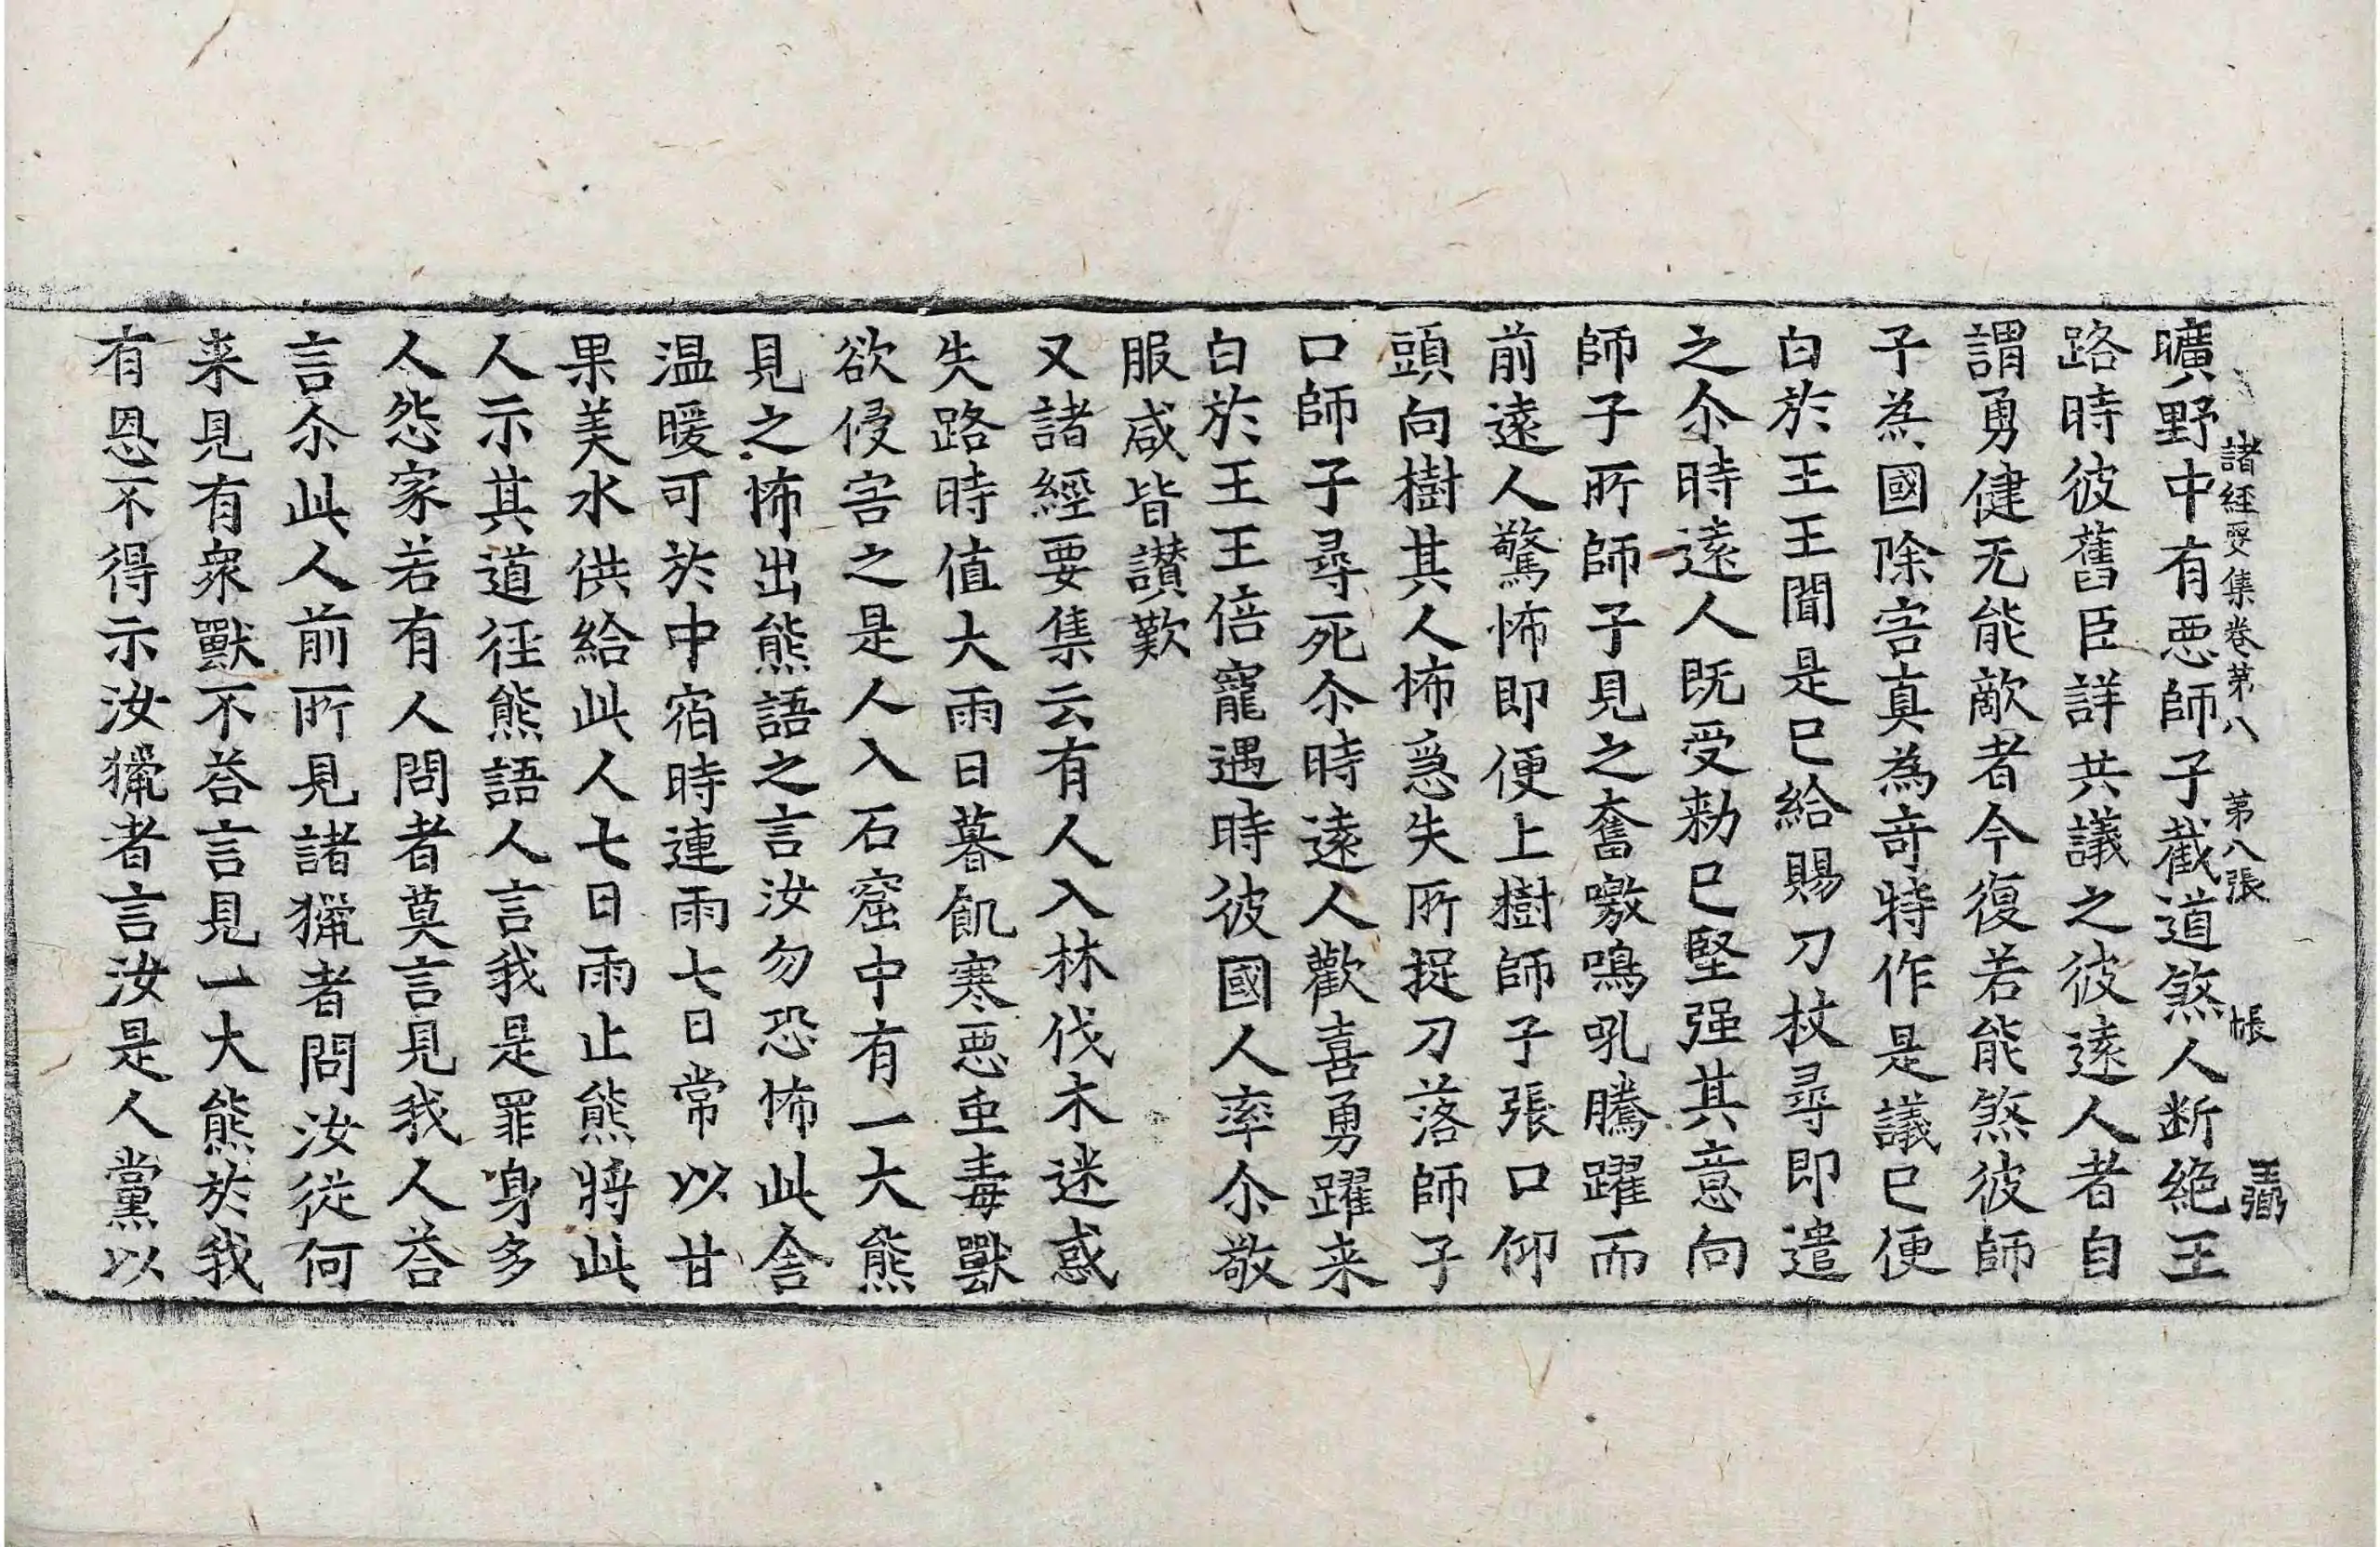 諸經要集卷第八 第八張 帳
曠野中有惡師子截道煞人断絶王
路時彼舊臣詳共議之彼逺人者自
謂勇健无能敵者今復若能煞彼師
子為國除害真為竒特作是議已便
白於王王聞是已給賜刀杖尋即遣
之尒時逺人既受勑已堅强其意向
師子所師子見之奮噭鳴吼騰躍而
前逺人驚怖即便上樹師子張口仰
頭向樹其人怖急失所捉刀落師子
口師子尋死尒時逺人歡喜勇躍来
白於王王倍寵遇時彼國人率尒敬
服咸皆讃歎
又諸經要集云有人入林伐木迷惑
失路時值大雨日暮飢寒惡虫毒獸
欲侵害之是人入石窟中有一大熊
見之怖出熊語之言汝勿恐怖此舍
温暖可於中宿時連雨七日常以甘
果美水供給此人七日雨止熊將此
人示其道徑熊語人言我是罪身多
人怨家若有人問者莫言見我人荅
言尒此人前所見諸獵者問汝從何
来見有衆獸不荅言見一大熊於我
有恩不得示汝獵者言汝是人黨以